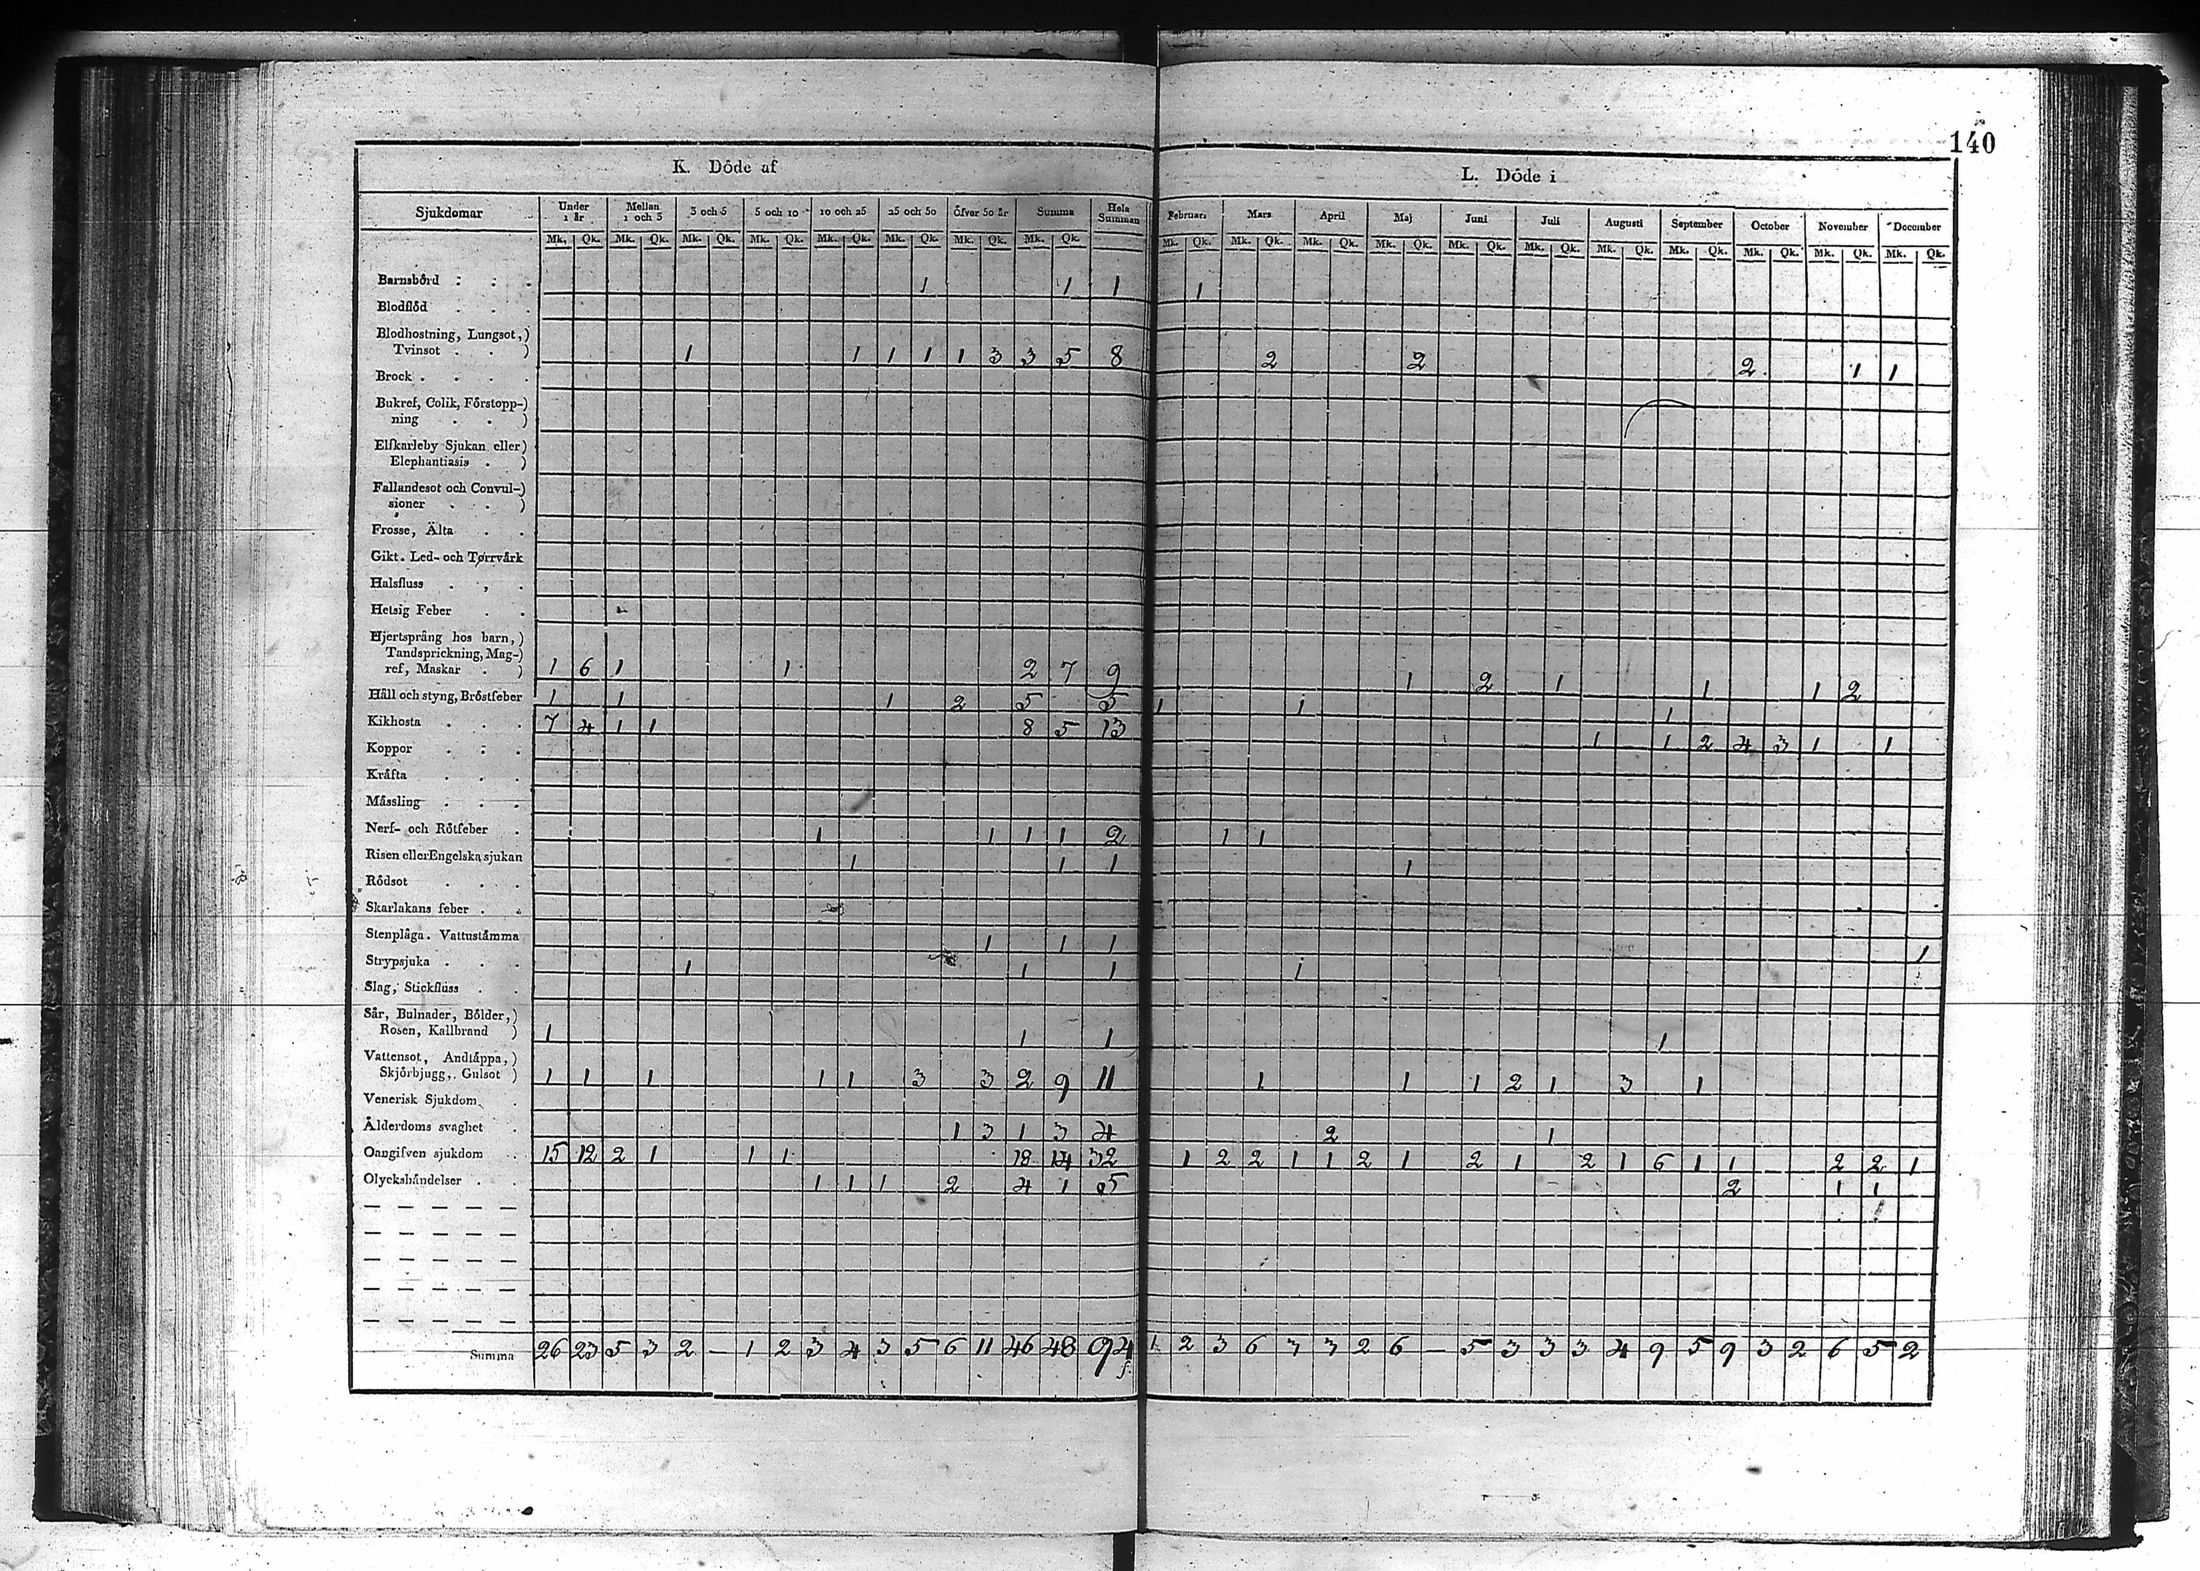 140
K. Döde af L. Döde i
Sjukdomar Under 1 år Mellan 1 och 3 3 och 5 5 och 10 10 och 25 25 och 50 Öfver 50 år Summa Hela Summan Februari Mars April Maj Juni Juli Augusti September October November December
Mk. Qk. Mk. Qk. Mk. Qk. Mk. Qk. Mk. Qk. Mk. Qk. Mk. Qk. Mk. Qk. Mk. Qk. Mk. Qk. Mk. Qk. Mk. Qk. Mk. Qk. Mk. Qk. Mk. Qk. Mk. Qk. Mk. Qk. Mk. Qk. Mk. Qk.
Barnsbörd . . . 1 1 1 1
Blodflöd . . .
Blodhostning, Lungsot,)
Tvinsot . . ) 1 1 1 1 1 3 3 5 8 2 2 2 1 1
Brock . . . .
Bukref, Colik, Förstopp-)
ning . . )
Elfkarleby Sjukan eller)
Elephantiasis . )
Fallandesot och Convul-)
sioner . . )
Frosse, Älta . .
Gikt. Led- och Torrvärk
Halsfluss . , .
Hetsig Feber . .
Hjertsprång hos barn, )
Tandsprickning, Mag-)
ref, Maskar . ) 1 6 1 1 2 7 9 1 2 1 1 1 2
Håll och styng, Bröstfeber 1 1 1 2 5 5 1 1 1
Kikhosta . . . 7 4 1 1 8 5 13 1 1 2 4 3 1 1
Koppor . . .
Kräfta . . .
Mässling . . .
Nerf- och Rötfeber . 1 1 1 1 2 1 1
Risen eller Engelska sjukan 1 1 1 1
Rödsot . . .
Skarlakans feber . .
Stenplåga. Vattustämma 1 1 1 1
Strypsjuka . . . 1 1 1 1
Slag, Stickfluss . .
Sår, Bulnader, Bölder,)
Rosen, Kallbrand ) 1 1 1 1
Vattensot, Andtäppa, )
Skjörbjugg, Gulsot ) 1 1 1 1 1 3 3 2 9 11 1 1 1 2 1 3 1
Venerisk Sjukdom .
Ålderdoms svaghet . 1 3 1 3 4 2 1
Oangifven sjukdom . . 15 12 2 1 1 1 18 14 32 1 2 2 1 1 2 1 2 1 2 1 6 1 1 - - 2 2 1
Olyckshändelser . . 1 1 1 2 4 1 5 2 1 1
Summa 26 23 5 3 2 - 1 2 3 4 3 5 6 11 46 48 94 1 2 3 6 3 3 2 6 - 5 3 3 3 4 9 5 9 3 2 6 5 2